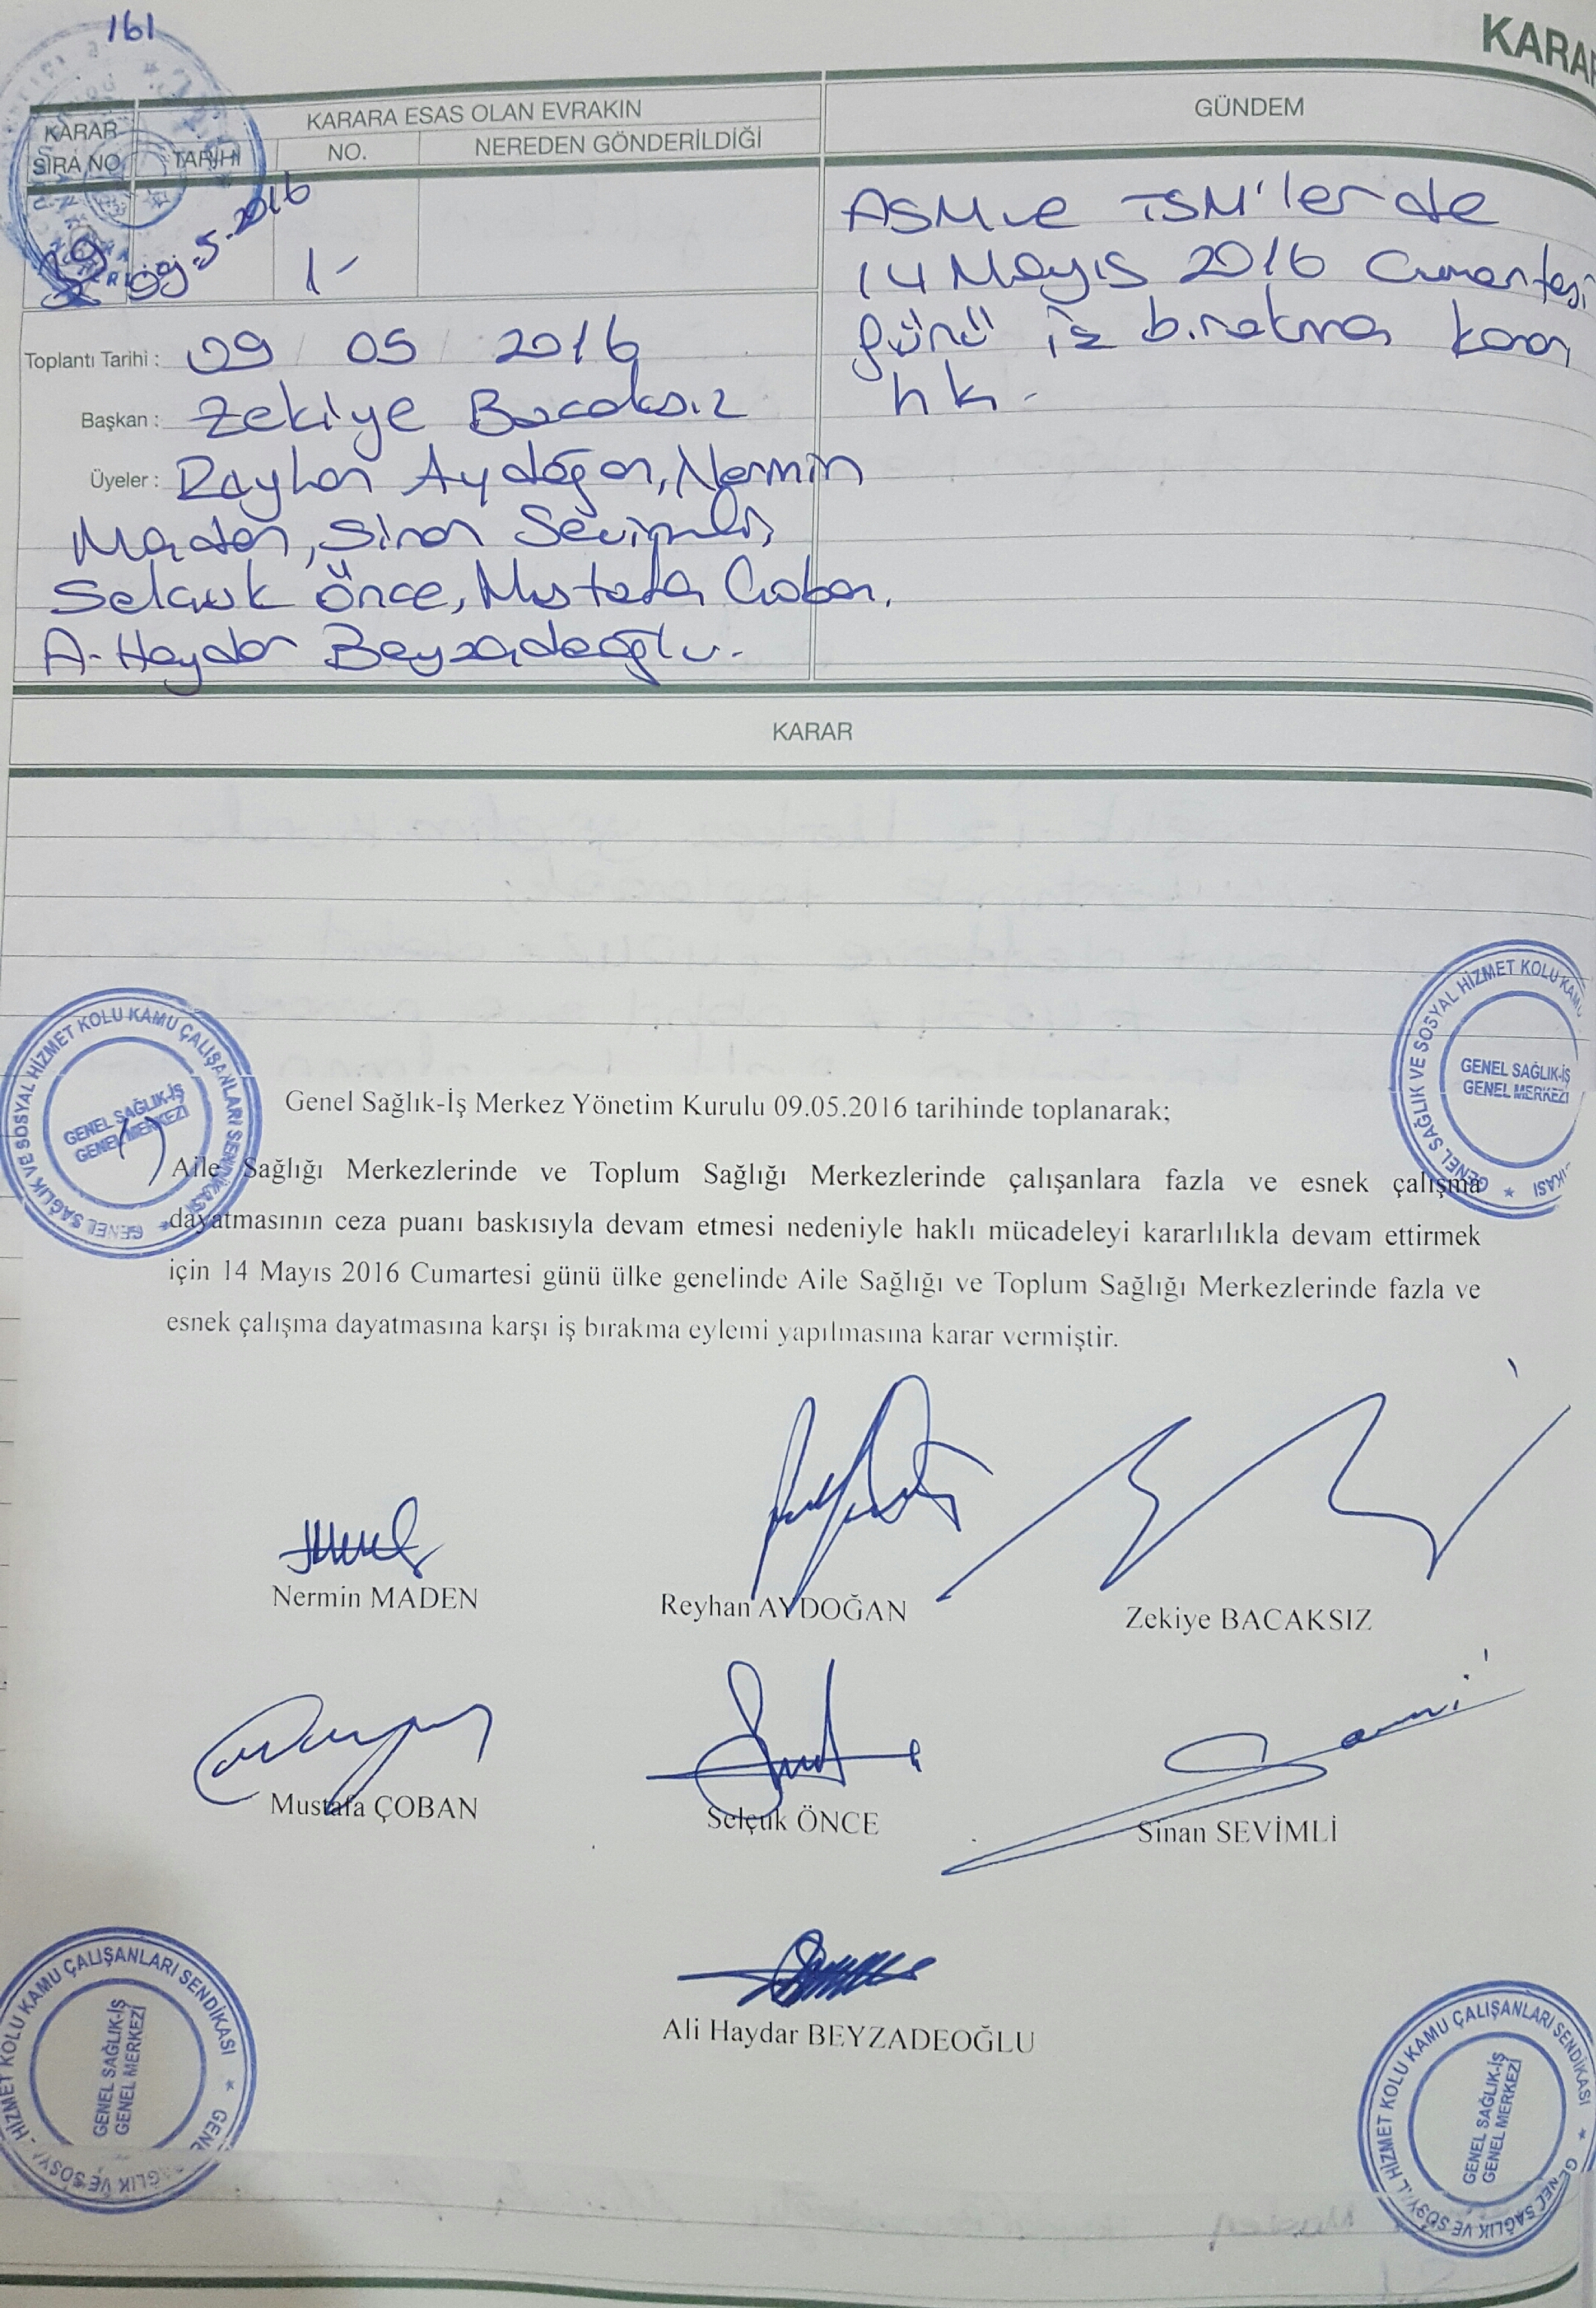 161
KARAR
KARAR SIRA NO
KARARA ESAS OLAN EVRAKIN
TARİHİ
NO.
NEREDEN GÖNDERİLDİĞİ
GÜNDEM
39
09.5.2016
1-
ASM ve TSM'lerde
14 Mayıs 2016 Cumartesi
günü iş bırakma kararı
hk.
Toplantı Tarihi : 09 / 05 / 2016
Başkan : Zekiye Bacaksız
Üyeler : Reyhan Aydoğan, Nermin
Maden, Sinan Sevimli,
Selçuk Önce, Mustafa Çoban,
A. Haydar Beyzadeoğlu.
KARAR
Genel Sağlık-İş Merkez Yönetim Kurulu 09.05.2016 tarihinde toplanarak;
Aile Sağlığı Merkezlerinde ve Toplum Sağlığı Merkezlerinde çalışanlara fazla ve esnek çalışma
dayatmasının ceza puanı baskısıyla devam etmesi nedeniyle haklı mücadeleyi kararlılıkla devam ettirmek
için 14 Mayıs 2016 Cumartesi günü ülke genelinde Aile Sağlığı ve Toplum Sağlığı Merkezlerinde fazla ve
esnek çalışma dayatmasına karşı iş bırakma eylemi yapılmasına karar vermiştir.
GENEL SAĞLIK VE SOSYAL HİZMET KOLU KAMU ÇALIŞANLARI SENDİKASI
GENEL SAĞLIK-İŞ
GENEL MERKEZİ
GENEL SAĞLIK VE SOSYAL HİZMET KOLU KAMU
GENEL SAĞLIK-İŞ
GENEL MERKEZİ
Nermin MADEN
Reyhan AYDOĞAN
Zekiye BACAKSIZ
Mustafa ÇOBAN
Selçuk ÖNCE
Sinan SEVİMLİ
Ali Haydar BEYZADEOĞLU
SAĞLIK VE SOSYAL HİZMET KOLU KAMU ÇALIŞANLARI SENDİKASI
GENEL SAĞLIK-İŞ
GENEL MERKEZİ
GENEL SAĞLIK VE SOSYAL HİZMET KOLU KAMU ÇALIŞANLARI SENDİKASI
GENEL SAĞLIK-İŞ
GENEL MERKEZİ